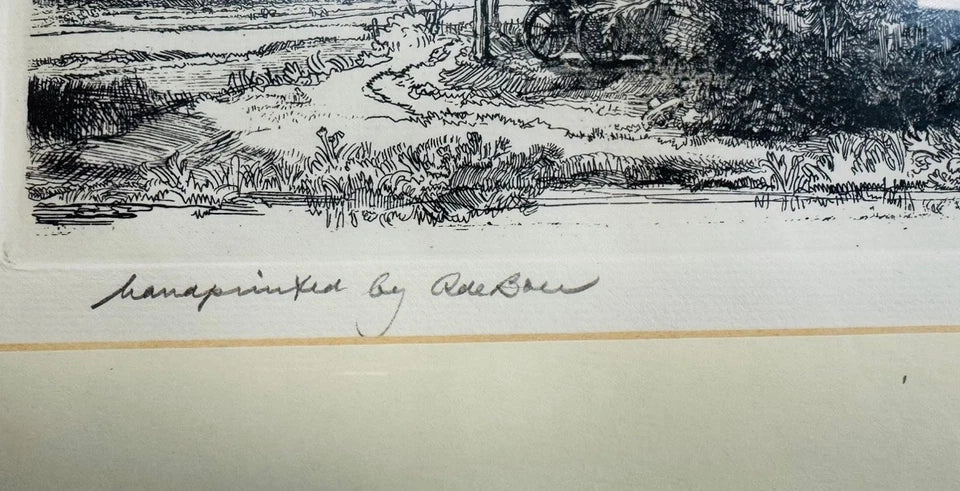 handprinted by R de Boer